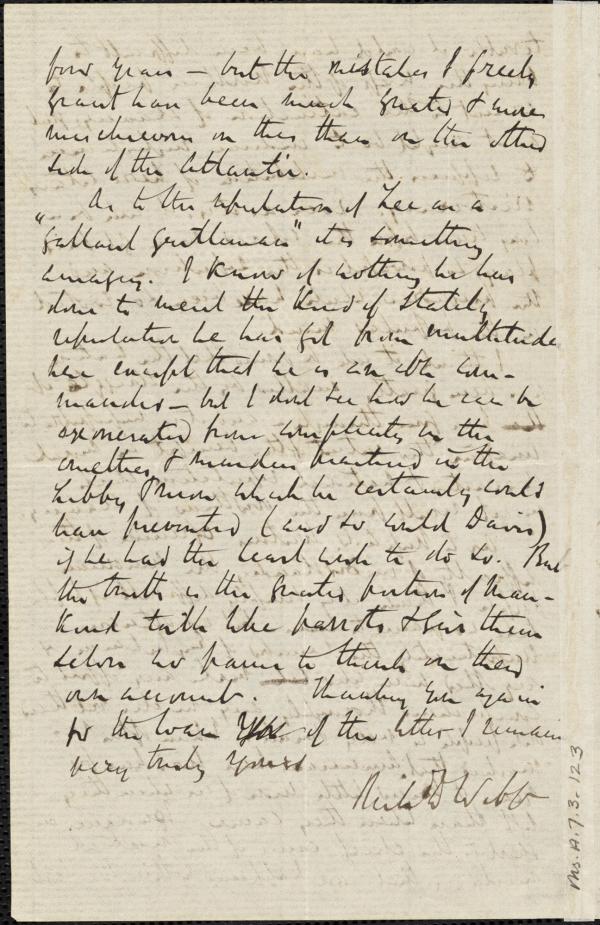 four years — but the mistakes I freely
grant have been much greater & more
mischievous on this than on the other
side of the Atlantic.
As to the reputation of Lee as a
"gallant gentleman" it is something
amazing. I know of nothing he has
done to merit the kind of stately
reputation he has got from multitudes
here except that he is an able com-
mander — but I dont see how he can be
exonerated from complicity in the
cruelties & murders practised in the
Libby Prison which he certainly could
have prevented (and so could Davis)
if he had the least wish to do so. But
the truth is the greater portion of man-
kind talk like parrots & give them
selves no pains to think on their
own account. Thanking you again
for the loan of the letter I remain
very truly yours
Richd D Webb
Ms. A. 7. 3. 123